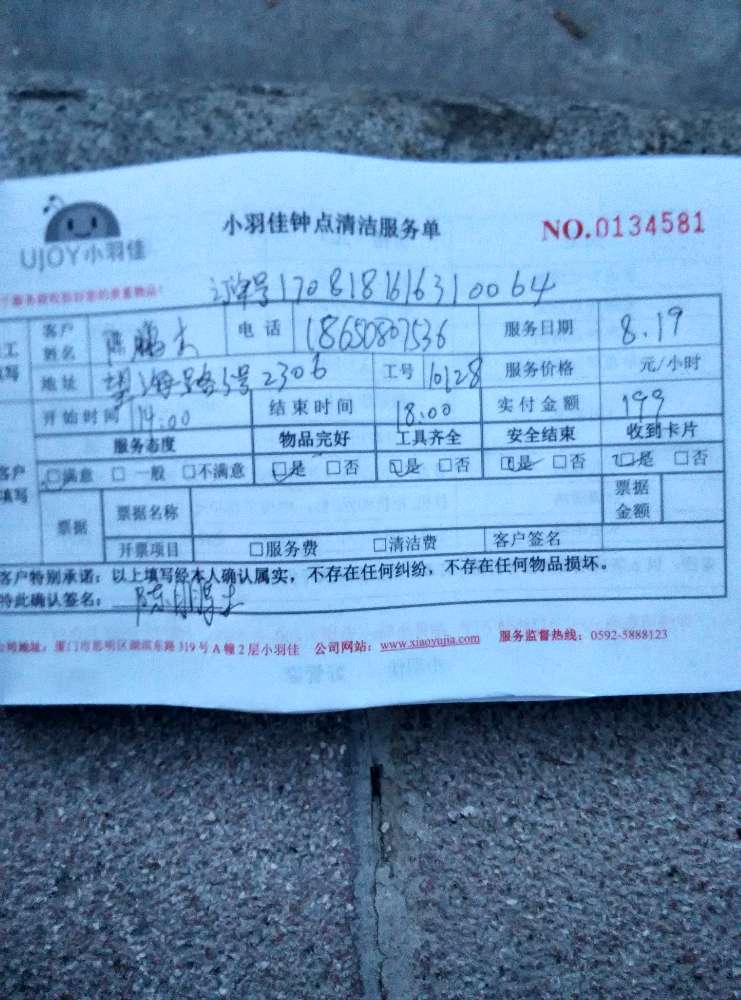 UJOY小羽佳
小羽佳钟点清洁服务单
NO.0134581
订单号1708181616310064
客户姓名 陈鹏 电话 18650807536 服务日期 8.19
地址 望海路5号2306 工号 10128 服务价格 元/小时
开始时间 14:00 结束时间 18:00 实付金额 199
服务态度 物品完好 工具齐全 安全结束 收到卡片
客户填写 □满意 □一般 □不满意 □是 □否 □是 □否 □是 □否 □是 □否
票据 票据名称 票据金额
开票项目 □服务费 □清洁费 客户签名
客户特别承诺：以上填写经本人确认属实，不存在任何纠纷，不存在任何物品损坏。
特此确认签名：
公司地址：厦门市思明区湖滨东路319号A幢2层小羽佳 公司网站：www.xiaoyujia.com 服务监督热线：0592-5888123